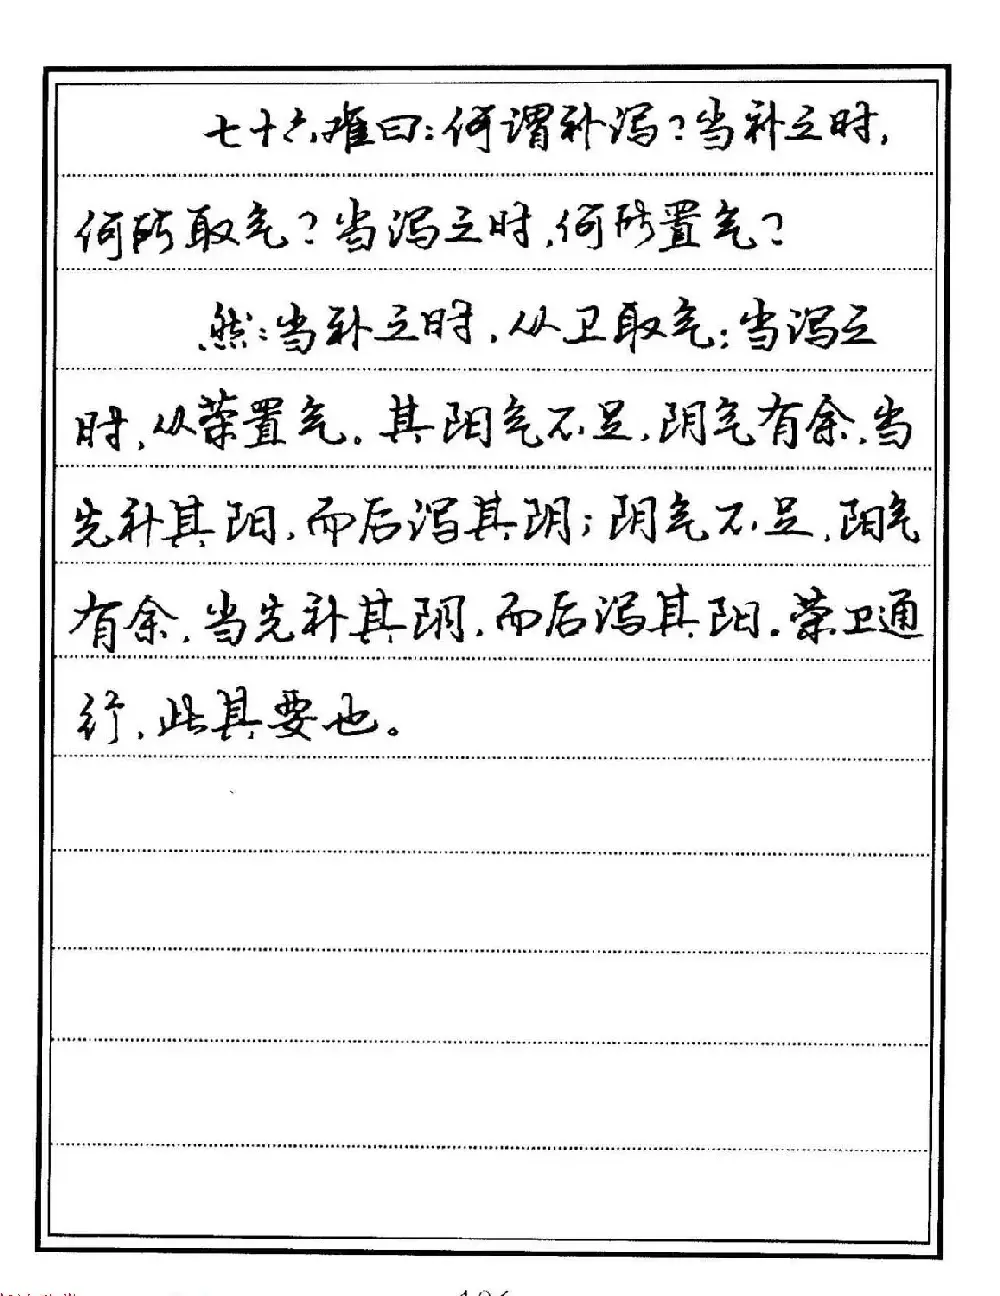 七十六难曰：何谓补泻？当补之时，
何所取气？当泻之时，何所置气？
然：当补之时，从卫取气；当泻之
时，从荣置气。其阳气不足，阴气有余，当
先补其阳，而后泻其阴；阴气不足，阳气
有余，当先补其阴，而后泻其阳。荣卫通
行，此其要也。